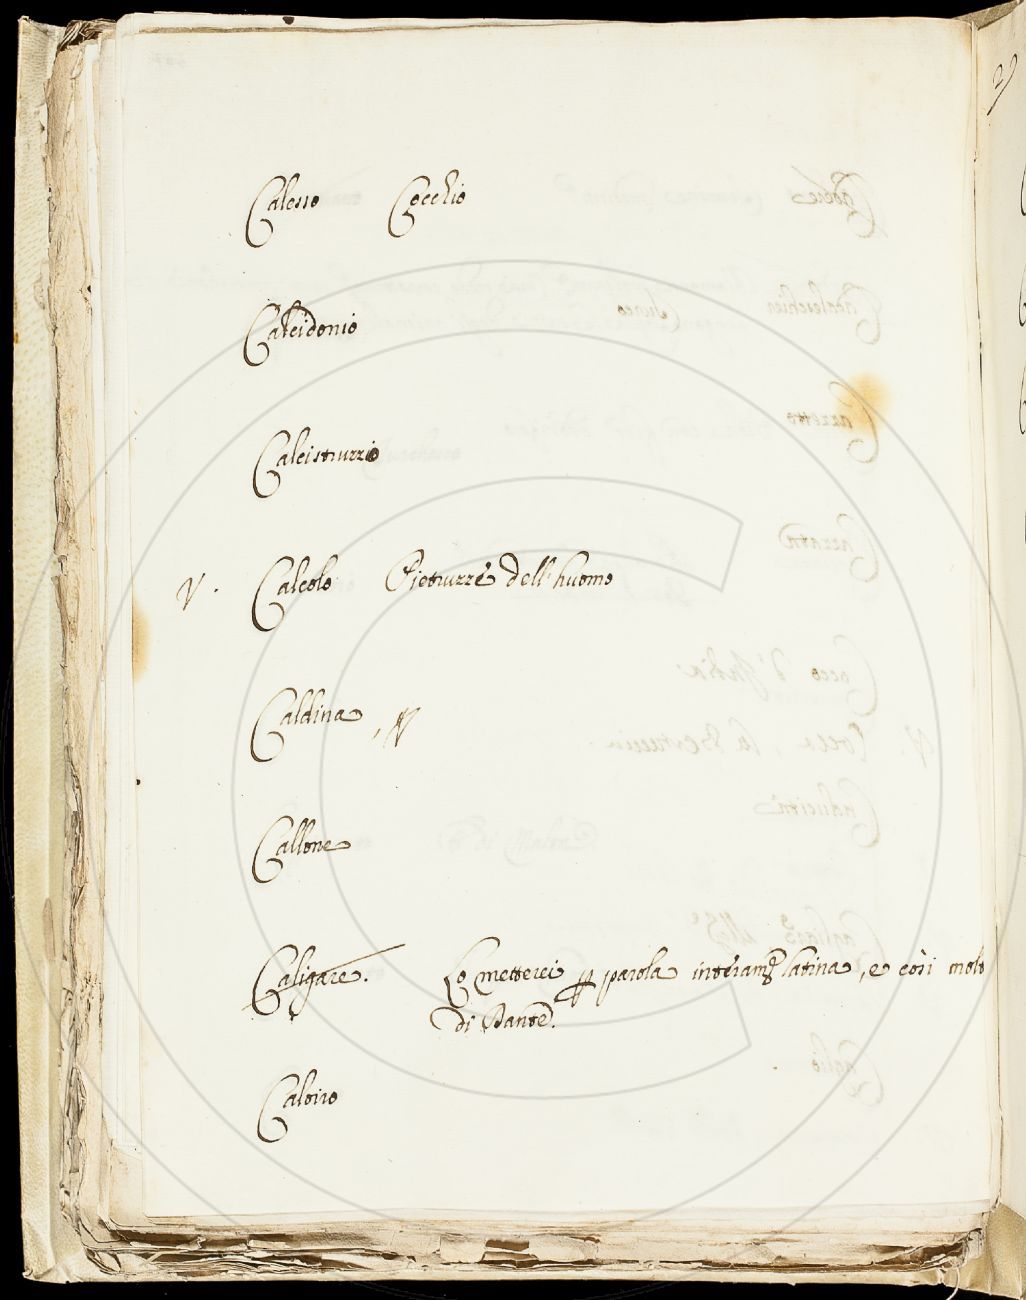 Calesso Cocchio
Calcidonio
Calcistruzzo
V. Calcolo Pietruzze dell'huomo
Caldina, N
Callone
Caligare. Lo metterei per parola interam.te latina, e così molto
di Dante.
Caloiro
29